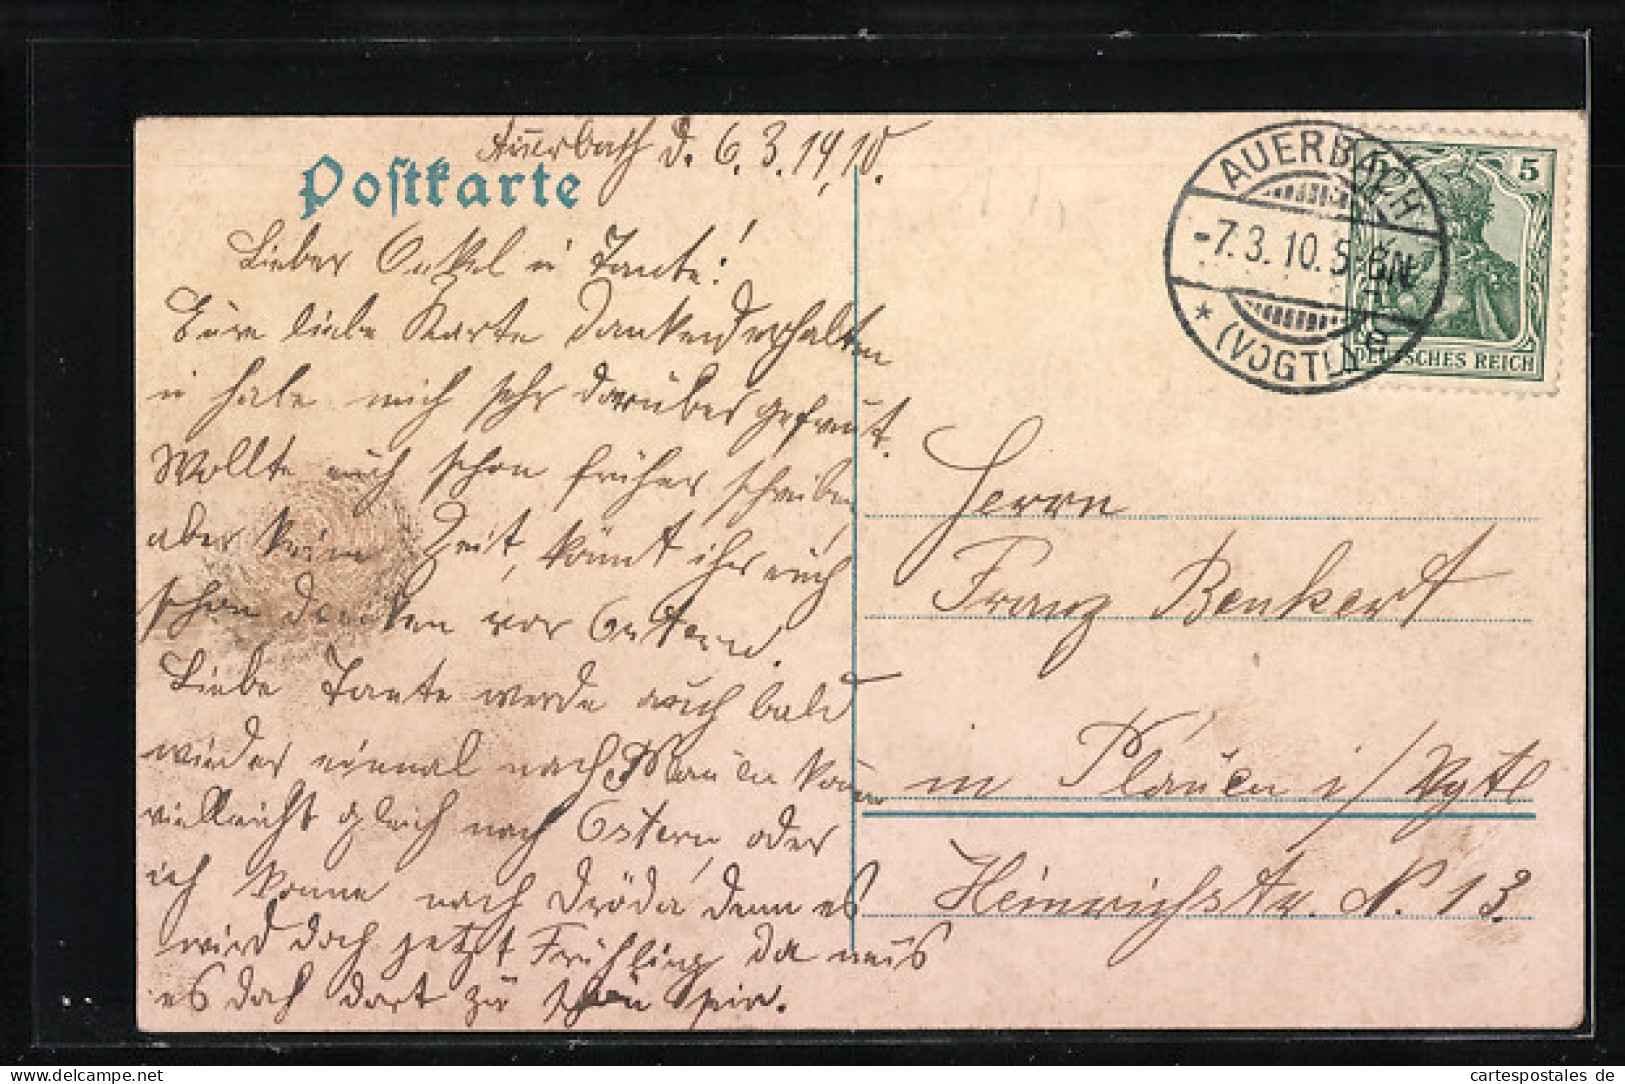 Auerbach d. 6.3.19,10.
Postkarte
Lieber Onkel u Tante!
Eure liebe Karte dankend erhalten
u habe mich sehr darüber gefreut.
Wollte euch schon früher schreiben
aber keine Zeit, könnt ihr euch
schon denken vor Ostern.
Liebe Tante werde auch bald
wieder einmal nach Plauen komm
vielleicht gleich nach Ostern, oder
ich komme nach Dröda, denn es
wird doch jetzt Frühling da muß
es doch dort zu schön sein.
AUERBACH
-7.3.10.5-6N
* (VOGTL)
5 5
DEUTSCHES REICH
Herrn
Franz Benkert
in Plauen i/Vgtl
Heinrichstr. N. 13.
cartespostales de